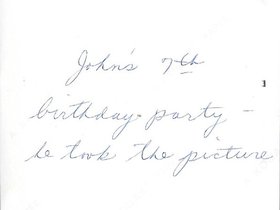 John's 7th
birthday party -
he took the picture